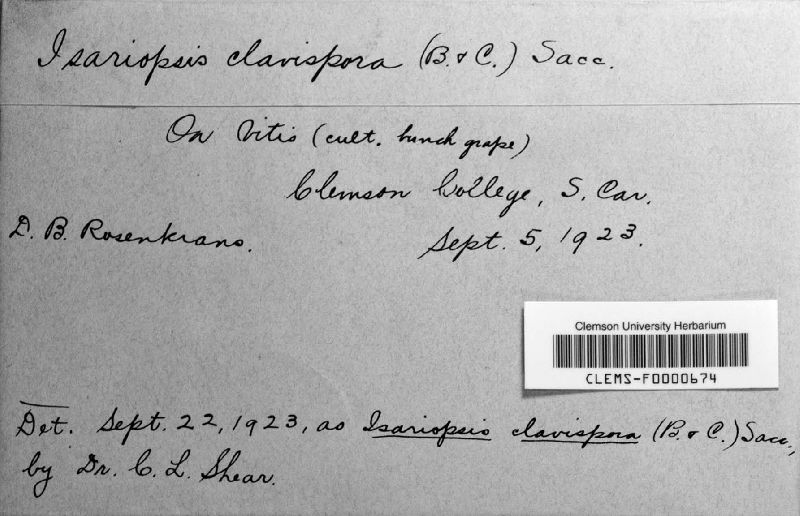 Isariopsis clavispora (B. & C.) Sacc.
On Vitis (cult. bunch grape)
Clemson College, S. Car.
D. B. Rosenkrans.
Sept. 5, 1923.
Clemson University Herbarium
CLEMS-F0000674
Det. Sept. 22, 1923, as Isariopsis clavispora (B. & C.) Sacc.,
by Dr. C. L. Shear.